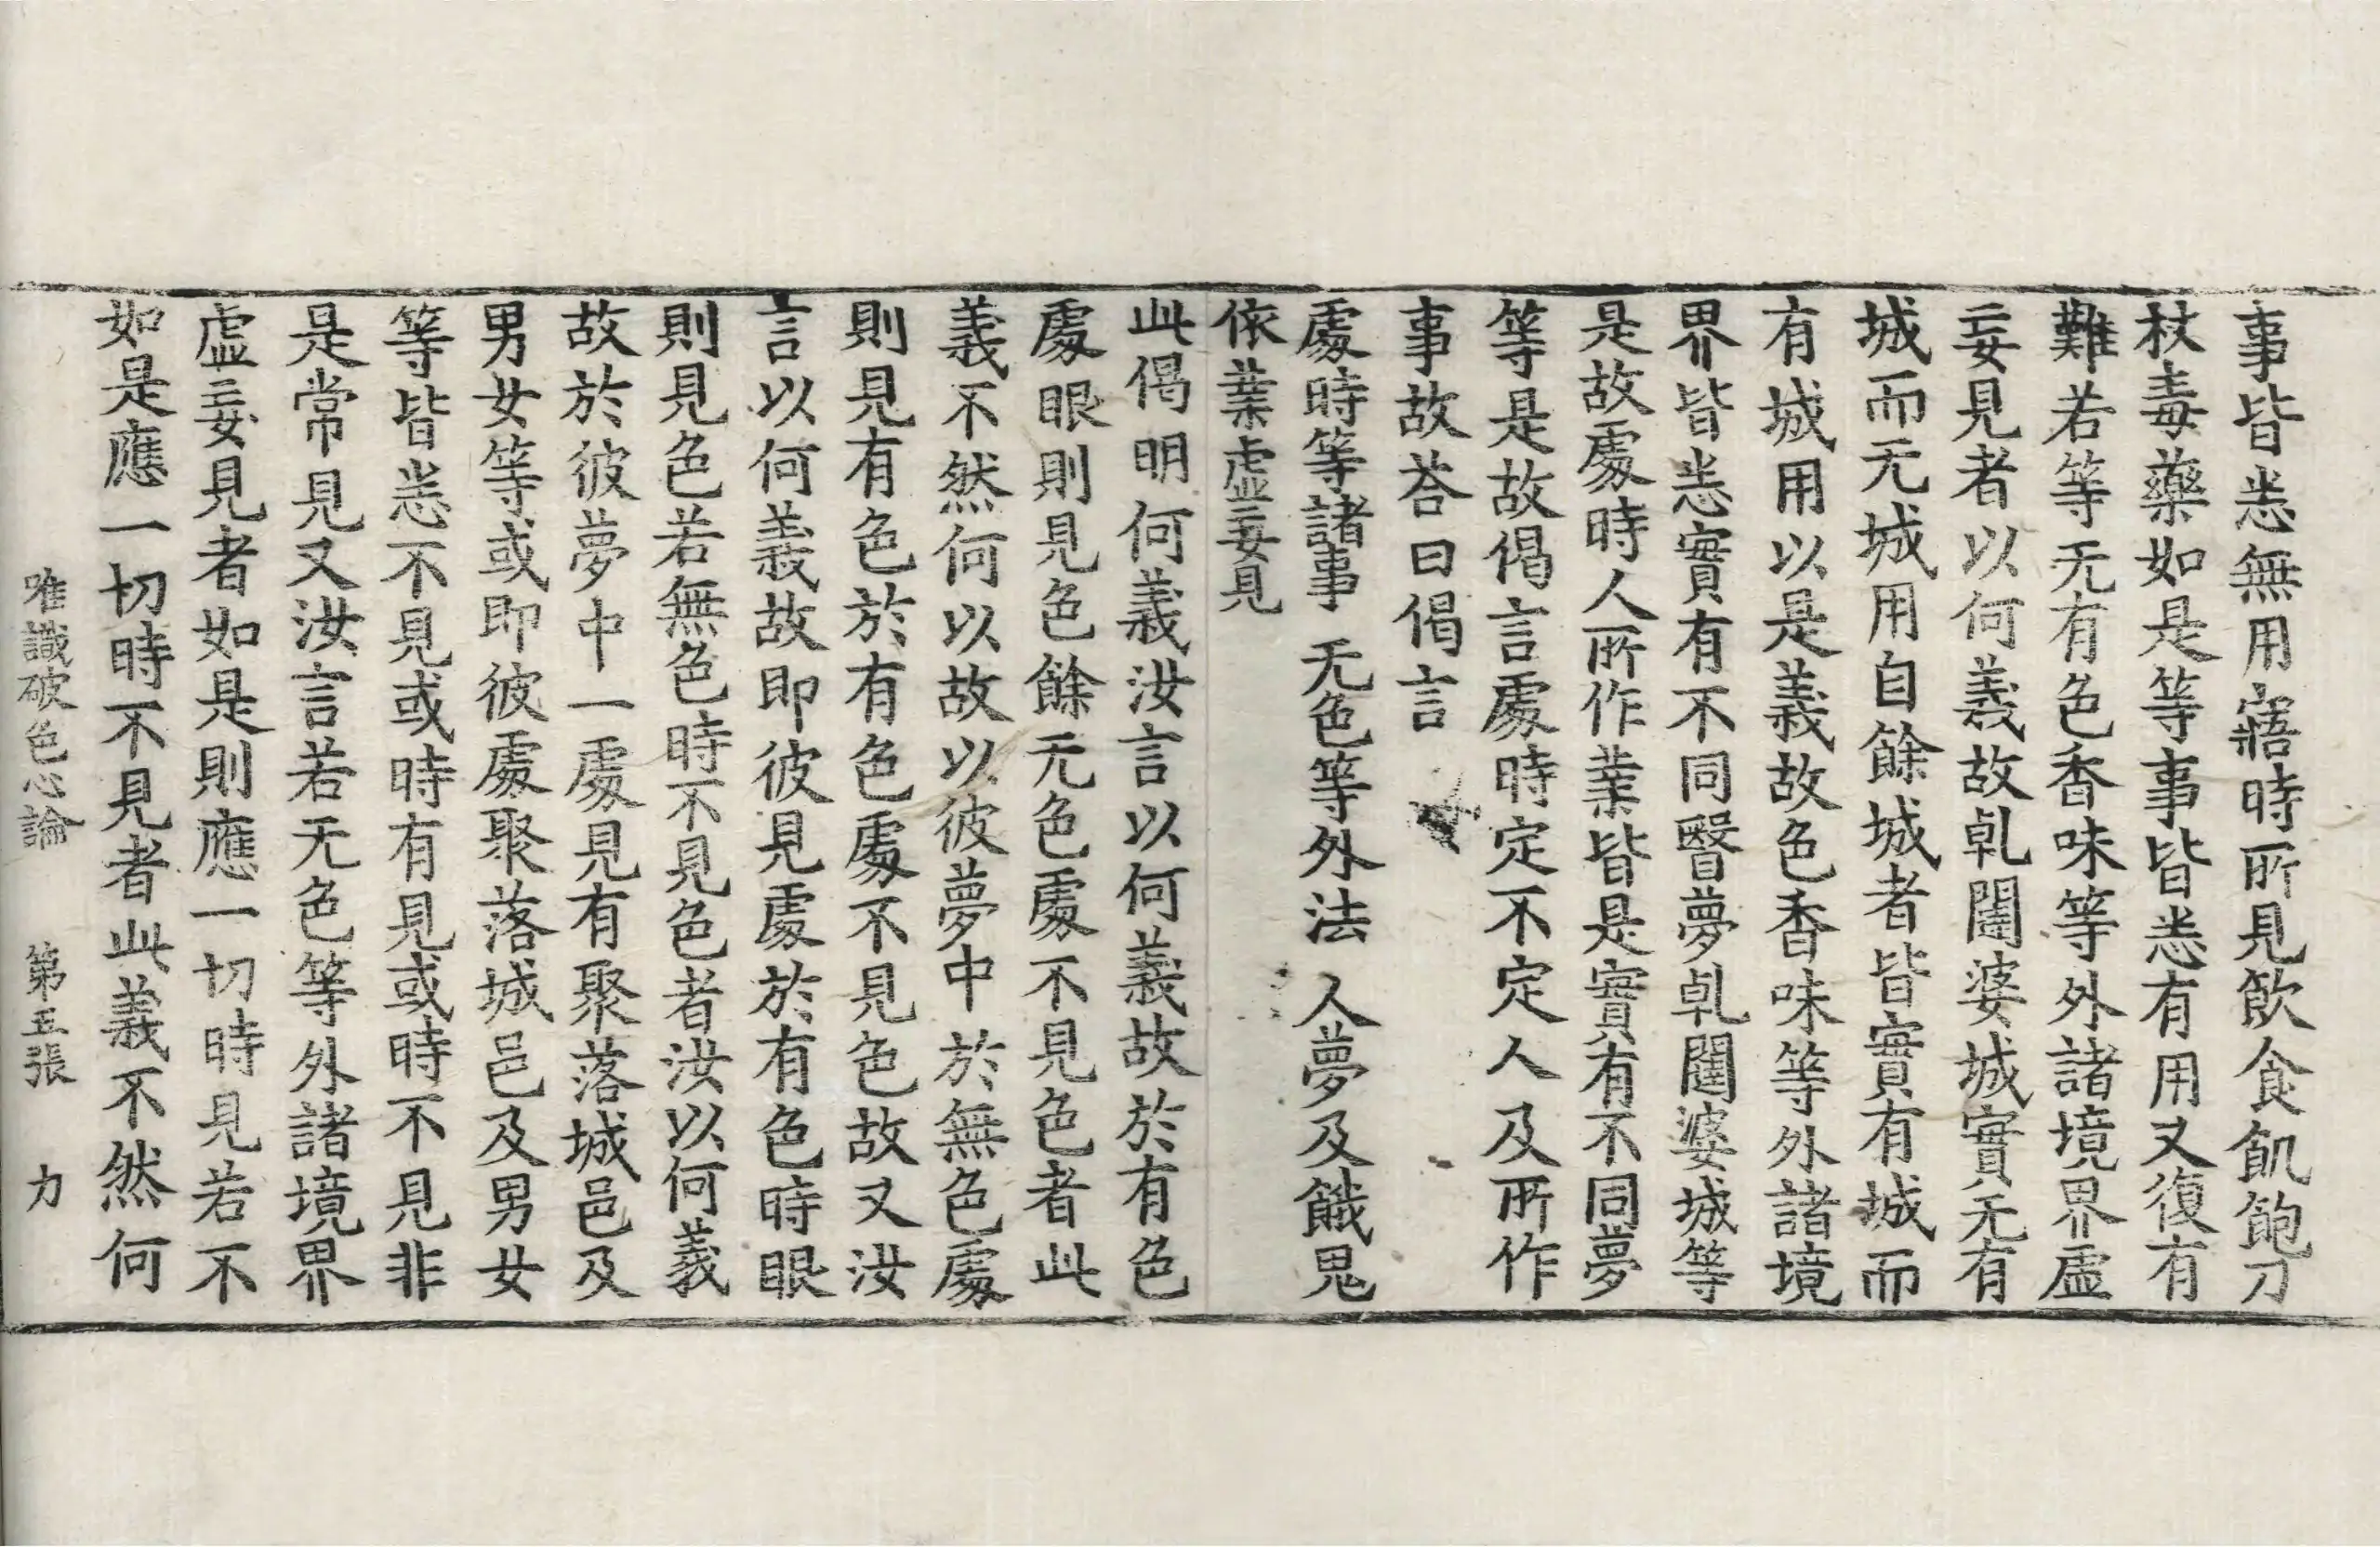 事皆悉無用寤時所見飲食飢飽刀
杖毒藥如是等事皆悉有用又復有
難若等无有色香味等外諸境界虛
妄見者以何義故乹闥婆城實无有
城而无城用自餘城者皆實有城而
有城用以是義故色香味等外諸境
界皆悉實有不同瞖夢乹闥婆城等
是故處時人所作業皆是實有不同夢
等是故偈言處時定不定人及所作
事故荅曰偈言
處時等諸事 无色等外法 人夢及餓鬼
依業虛妄見
此偈明何義汝言以何義故於有色
處眼則見色餘无色處不見色者此
義不然何以故以彼夢中於無色處
則見有色於有色處不見色故又汝
言以何義故即彼見處於有色時眼
則見色若無色時不見色者汝以何義
故於彼夢中一處見有聚落城邑及
男女等或即彼處聚落城邑及男女
等皆悉不見或時有見或時不見非
是常見又汝言若无色等外諸境界
虛妄見者如是則應一切時見若不
如是應一切時不見者此義不然何
唯識破色心論 第五張 力